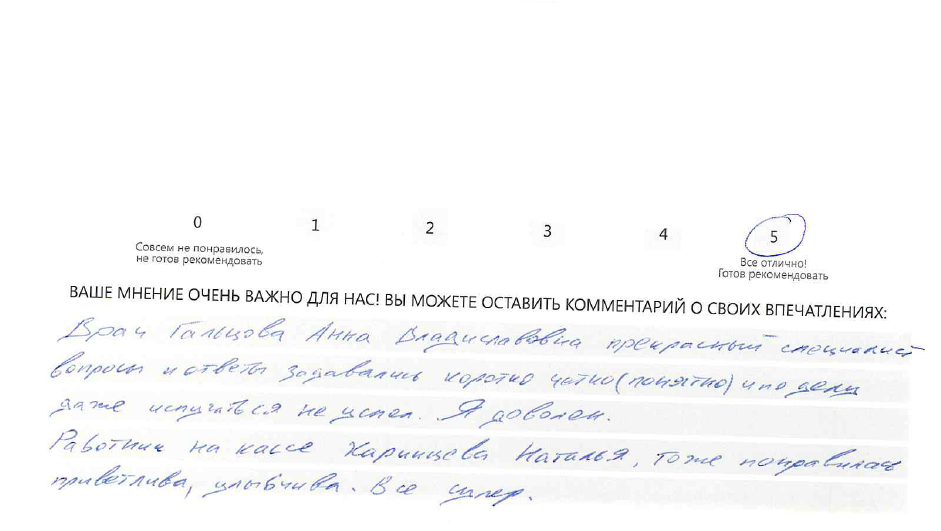 0 1 2 3 4 5
Совсем не понравилось,
не готов рекомендовать
Все отлично!
Готов рекомендовать
ВАШЕ МНЕНИЕ ОЧЕНЬ ВАЖНО ДЛЯ НАС! ВЫ МОЖЕТЕ ОСТАВИТЬ КОММЕНТАРИЙ О СВОИХ ВПЕЧАТЛЕНИЯХ:
Врач Гальцова Анна Владиславовна прекрасный специалист
вопросы и ответы задавались коротко четко (понятно) и по делу
даже испугаться не успел. Я доволен.
Работник на кассе Наталья, тоже понравилась
приветлива, улыбчива. Все супер.